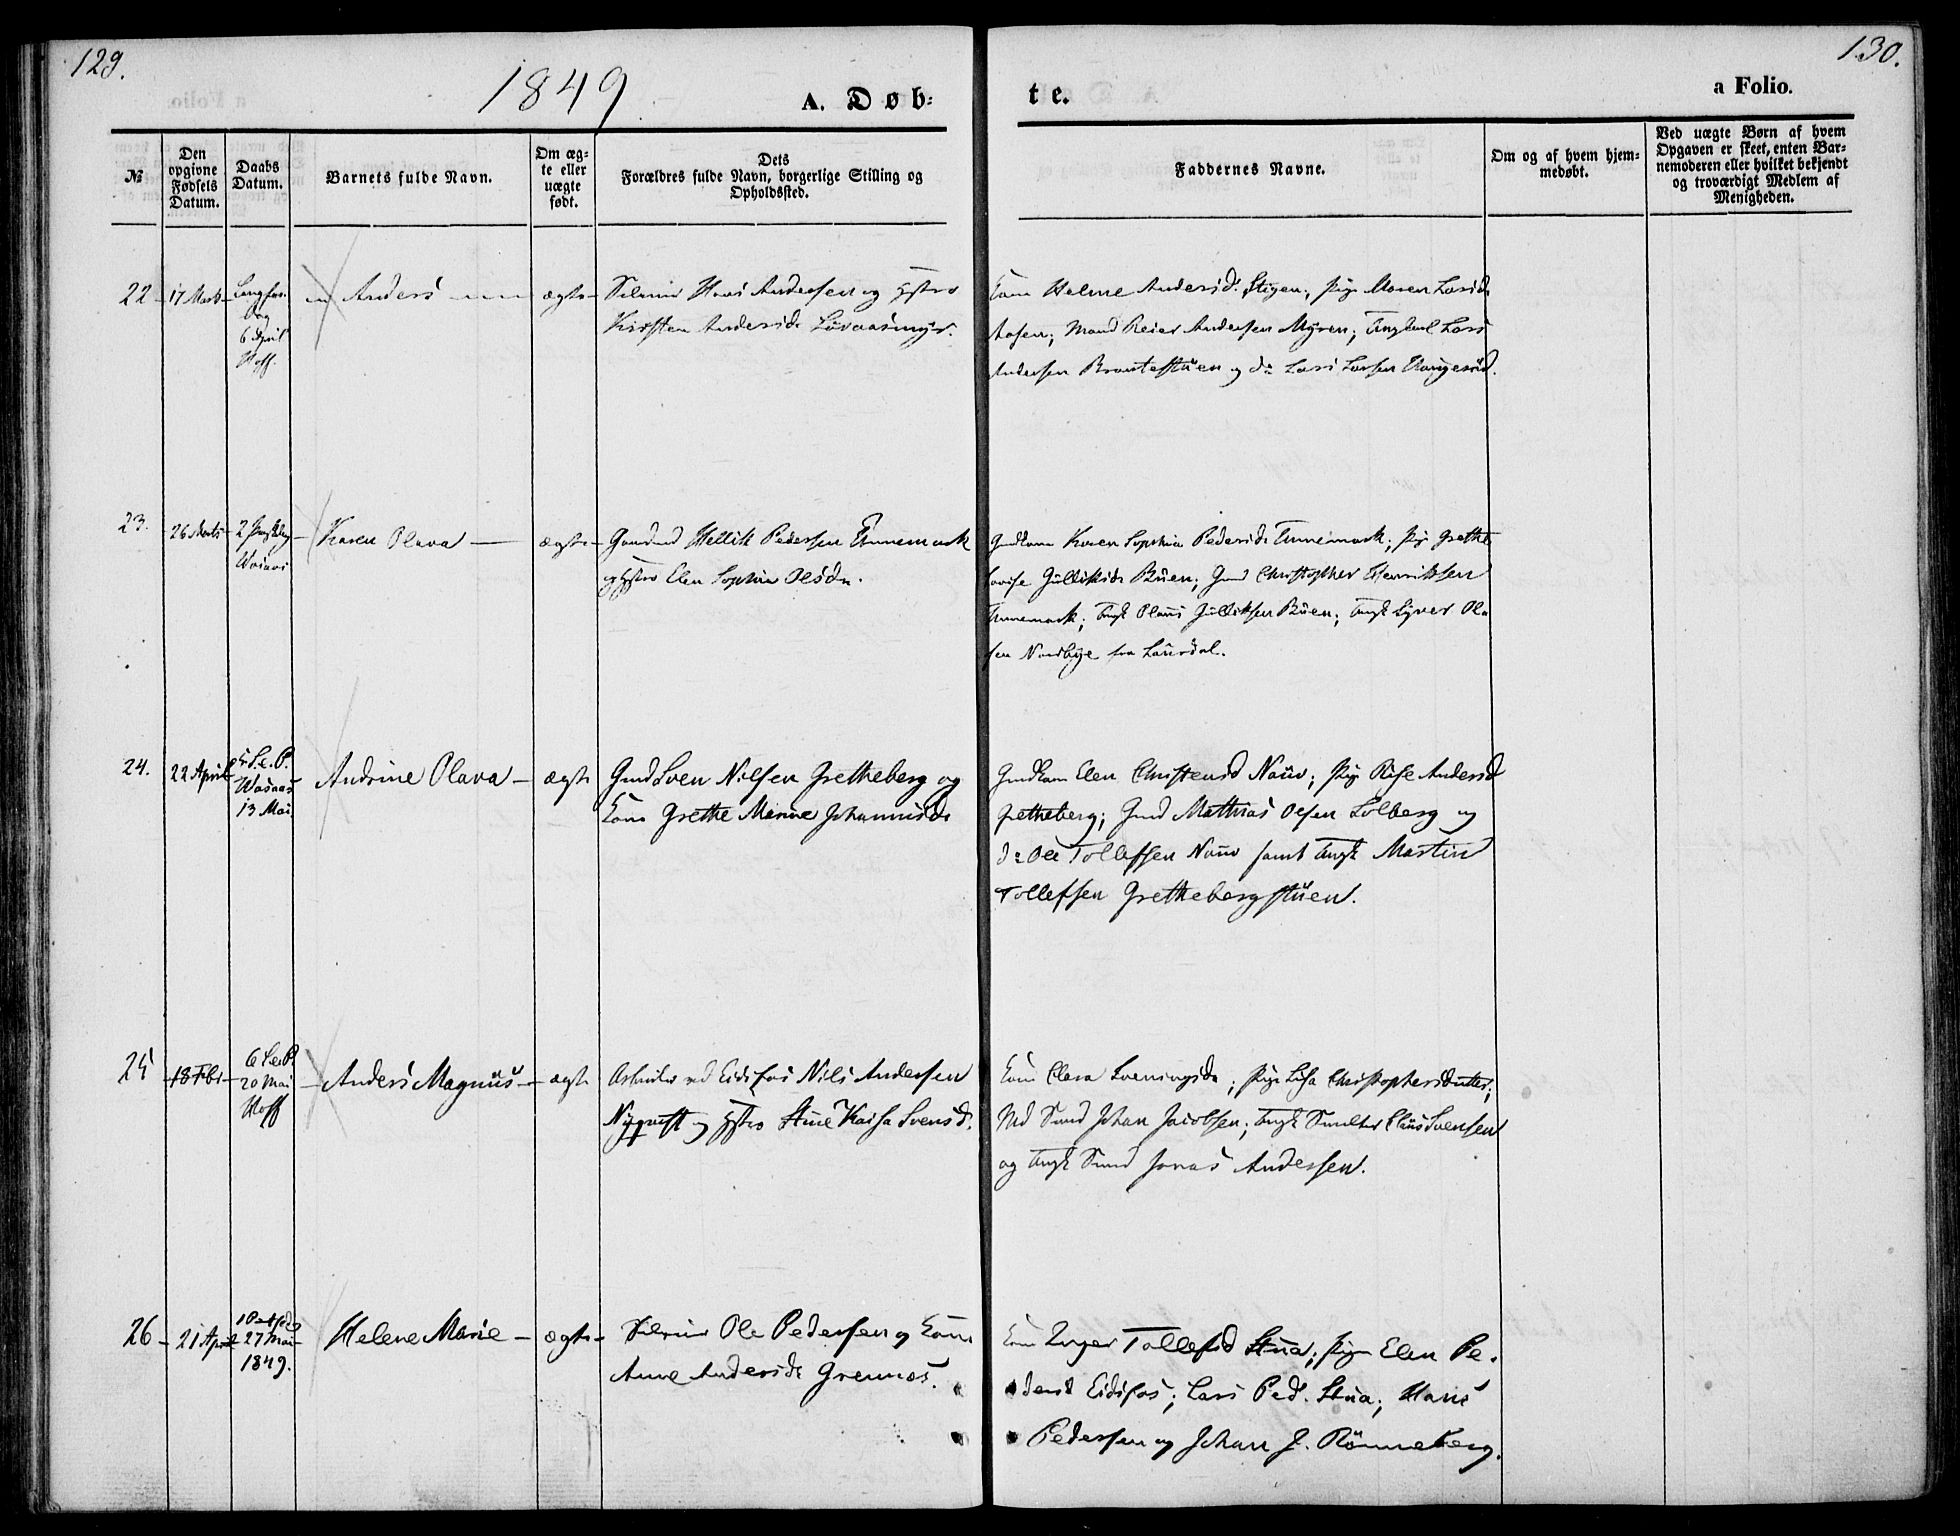 129.
130.
1849
A. Døb-
te.
a Folio.
№
Den opgivne Fødsels Datum.
Daabs Datum.
Barnets fulde Navn.
Om ægte eller uægte født.
Dets Forældres fulde Navn, borgerlige Stilling og Opholdssted.
Faddernes Navne.
Om og af hvem hjemmedøbt.
Ved uægte Børn af hvem Opgaven er skeet, enten Barnemoderen eller hvilket bekjendt og troværdigt Medlem af Menigheden.
22
17 Marts
Langfre-
dag
6 April
Hoff.
Anders
ægte
Hans Andersen og Hstro
Kirsten Andersd. Løvaasmyr.
Kone Helene Andersd. Stigen; Pige Maren Larsd.
Aasen; Mand Reier Andersen Myren; Ungkarl Lars
Andersen Brantestuen og do Lars Larsen Haugerød.
23.
26 Marts
2 Paaskedag
Vaaas
Karen Olava
ægte
Gaardmd Hellik PedersenUnnemark
og Hstro Elen Sophia Olsdr.
Gmdkone Karen Sophia Pedersdr Unnemark; Pige Grethe
Lovise Gulliksdr Buen; Gmd Christopher Henriksen
Unnemark; Ungk Olaus Gulliksen Buen; Ungk Syver Ol-
sen Nordbye fra Laurdal.
24.
22 April
5 S. e. P.
Vaaas
13 Mai
Andrine Olava
ægte
Gmd Sven Nilsen Gretheberg og
Kone Grethe Marine Johannisdr
Gmdkone Elen Christensd Nauv; Pige Rise Andersd
Gretheberg; Gmd Mathias Olsen Solberg og
do Ole Tollefsen Nauv samt Ungk Martin
Tollefsen Grethebergstuen.
25
18 Feb
6 S. e. P.
20 Mai
Hoff
Anders Magnus
ægte
Arbeider ved Eidsfos Nils Andersen
Nyqvist og Hstro Stine Kaisa Svensd.
Kone Clara Sveningsdr; Pige Lisa Christophersdatter;
Md Smed Johan Jacobsen; Ungk Smelter Claus Svensen
og Ungk Smed Jonas Andersen.
26
21 April
27 Mai
1849.
Helene Marie
ægte
Ole Pedersen og Kone
Anne Andersdr Grennes.
Kone Inger Tollefsd Stua; Pige Elen Pe-
dersd Eidsfos; Lars Ped. Stua; Hans
Pedersen og Johan J. Rønneberg.